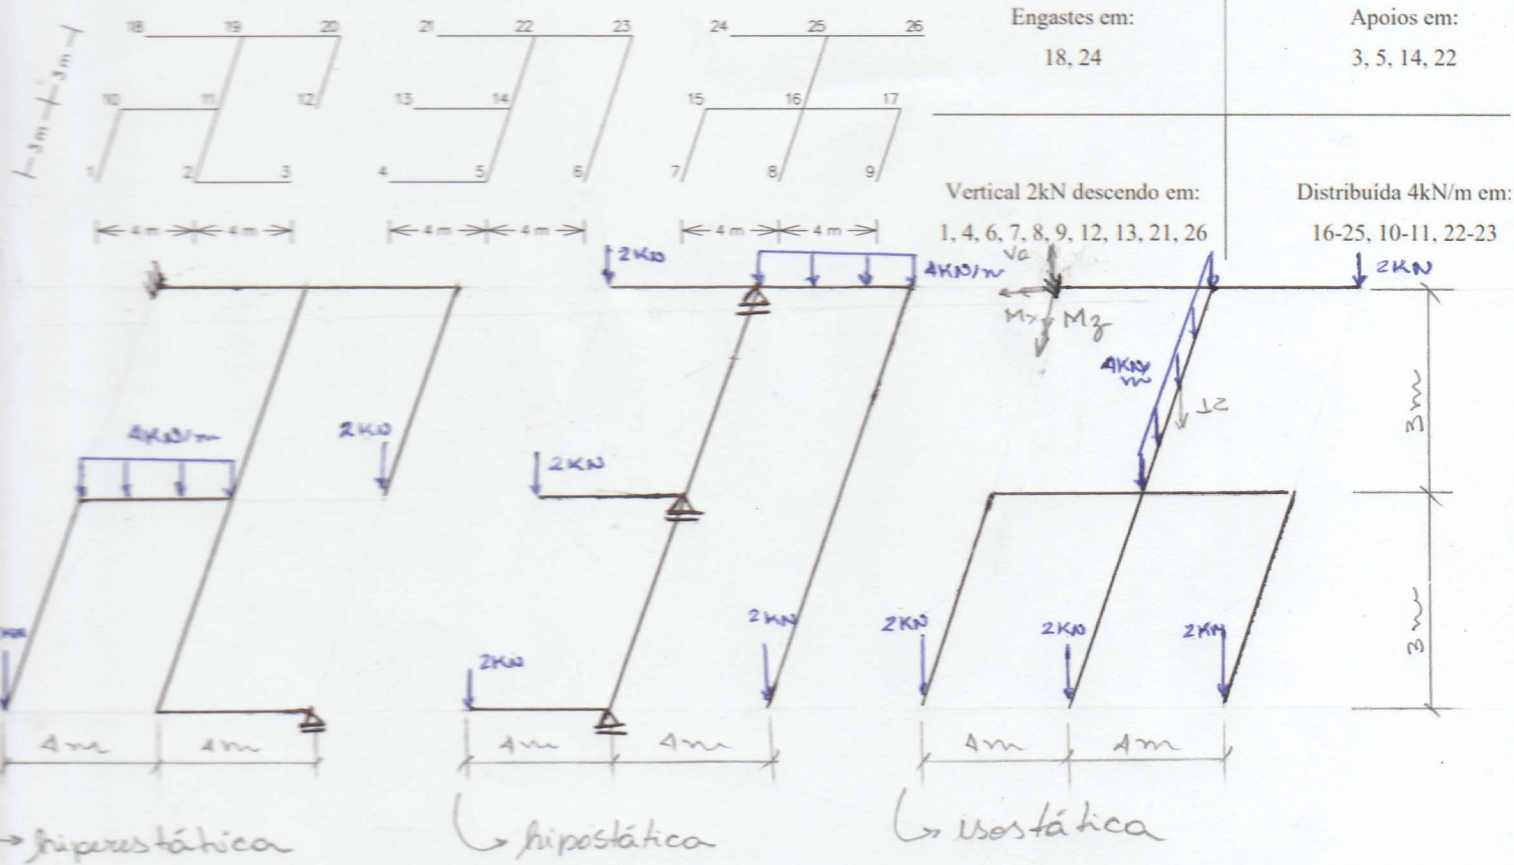 18 19 20 21 22 23 24 25 26
10 11 12 13 14 15 16 17
1 2 3 4 5 6 7 8 9
3m 3m
4m 4m 4m 4m 4m 4m
Engastes em:
18, 24
Apoios em:
3, 5, 14, 22
Vertical 2kN descendo em:
1, 4, 6, 7, 8, 9, 12, 13, 21, 26
Distribuída 4kN/m em:
16-25, 10-11, 22-23
2KN 4KN/m Va 2KN
Mx Mz
4KN/m
4KN/m 2KN 2KN 12 3m
KN 2KN 2KN 2KN 2KN 2KN 3m
4m 4m 4m 4m 4m 4m
hiperestática hipostática isostática